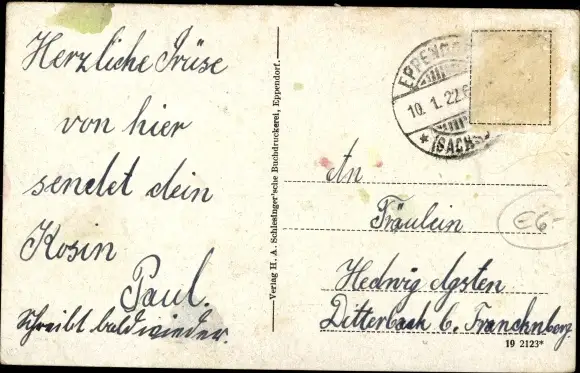 Herzliche Grüse
von hier
sendet dein
Kosin
Paul.
Schreibt bald wieder.
Verlag H. A. Schlesinger'sche Buchdruckerei, Eppendorf.
EPPENDO
10. 1. 22.6
* (SACHS
An
Fräulein
Hedwig
Ditterbach b. Franknberg.
€6-
19 2123*